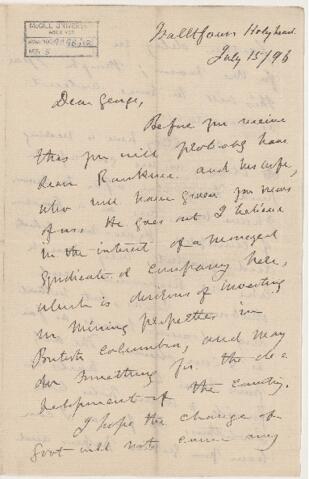 McGILL UNIVERSITY
ARCHIVES
ACC. NO.
REF. 5
Holyhead
July 15/96
Dear George,
Before you receive
this you will probably have
seen Rankine and his wife,
who will have given you news
of us. He goes out I believe
in the interest of a
Syndicate or Company here,
which is desirous of investing
in Mining properties in
British Columbia, and may
do something for the de
velopment of the country.
I hope the change of
Govt will not cause any